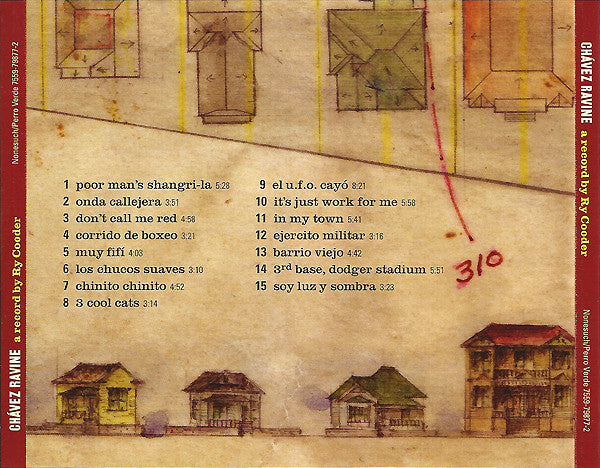 CHÁVEZ RAVINE a record by Ry Cooder
Nonesuch/Perro Verde 7559-79877-2
1 poor man's shangri-la 5:28
2 onda callejera 3:51
3 don't call me red 4:58
4 corrido de boxeo 3:21
5 muy fifí 4:03
6 los chucos suaves 3:10
7 chinito chinito 4:52
8 3 cool cats 3:14
9 el u.f.o. cayó 8:21
10 it's just work for me 5:58
11 in my town 5:41
12 ejercito militar 3:16
13 barrio viejo 4:42
14 3rd base, dodger stadium 5:51
15 soy luz y sombra 3:23
310
CHÁVEZ RAVINE a record by Ry Cooder
Nonesuch/Perro Verde 7559-79877-2